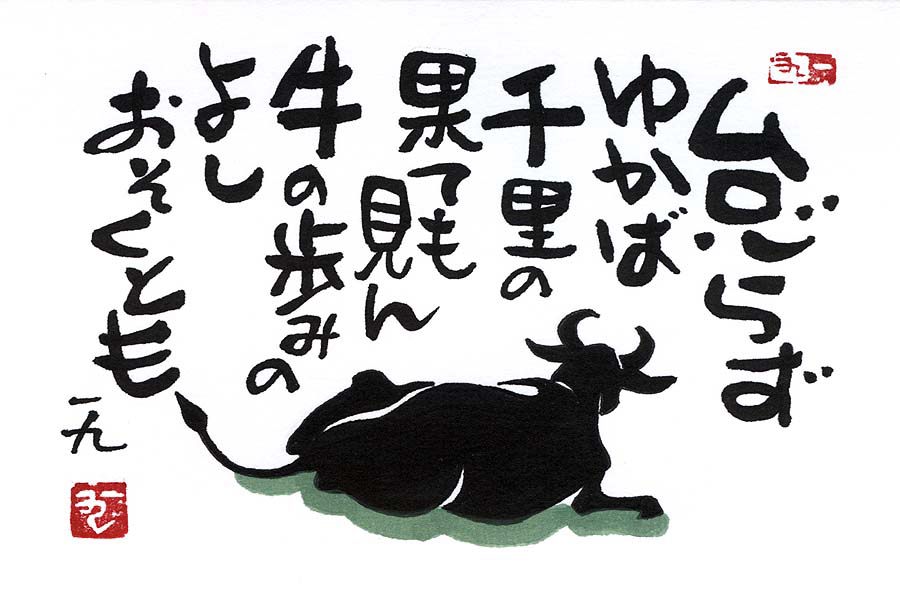 怠らず
ゆかば
千里の
果ても見ん
牛の歩みの
よし
おそくとも
一九